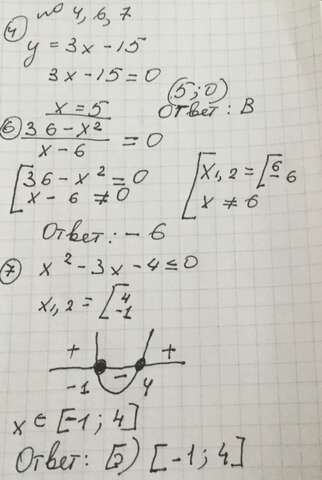 по 4, 6, 7
④ y = 3x - 15
3x - 15 = 0
x = 5
(5; 0)
Ответ: В
⑥ 36 - x²
x - 6
= 0
[ 36 - x² = 0
x - 6 ≠ 0
[ x₁,₂ = [ 6
- 6
x ≠ 6
Ответ: - 6
⑦ x² - 3x - 4 ≤ 0
x₁,₂ = [ 4
-1
+ - +
-1 4
x ∈ [-1; 4]
Ответ: Б) [-1; 4]